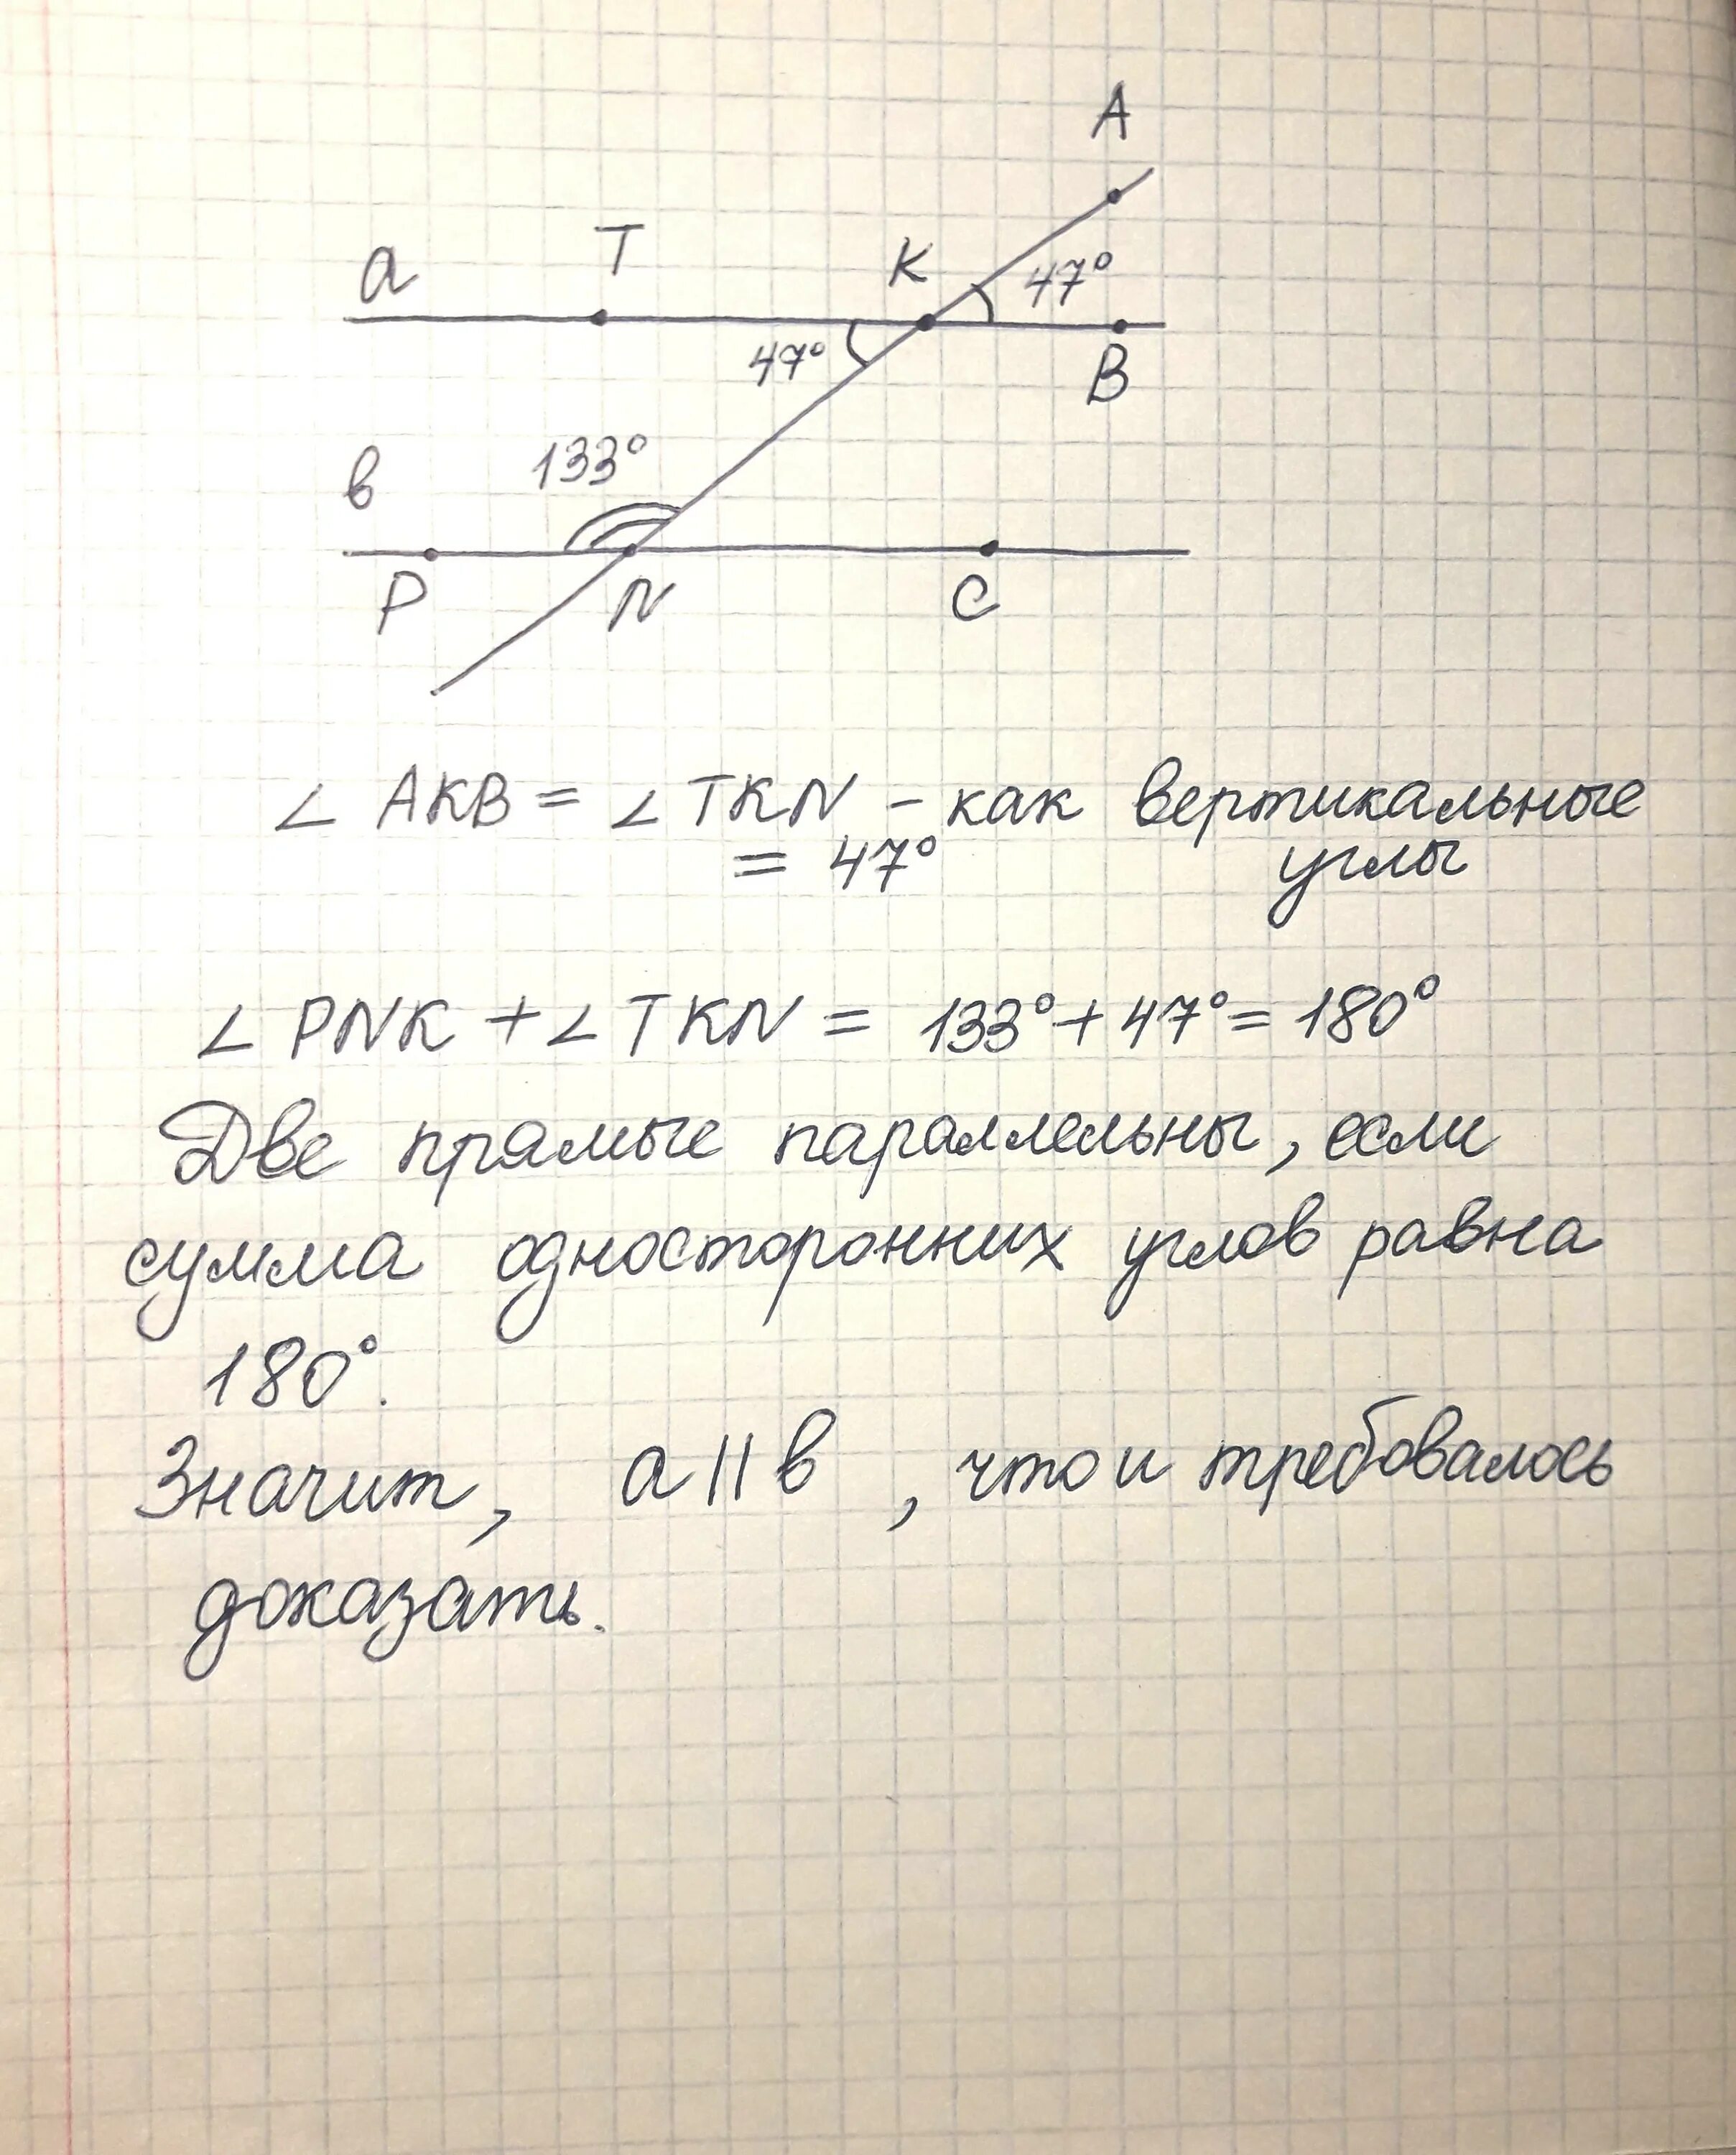 A
a
T
K
47°
47°
B
в
133°
P
N
C
∠ AKB = ∠ TKN - как вертикальные
= 47° углы
∠ PNK + ∠ TKN = 133° + 47° = 180°
Две прямые параллельны, если
сумма односторонних углов равна
180°.
Значит, a || в, что и требовалось
доказать.